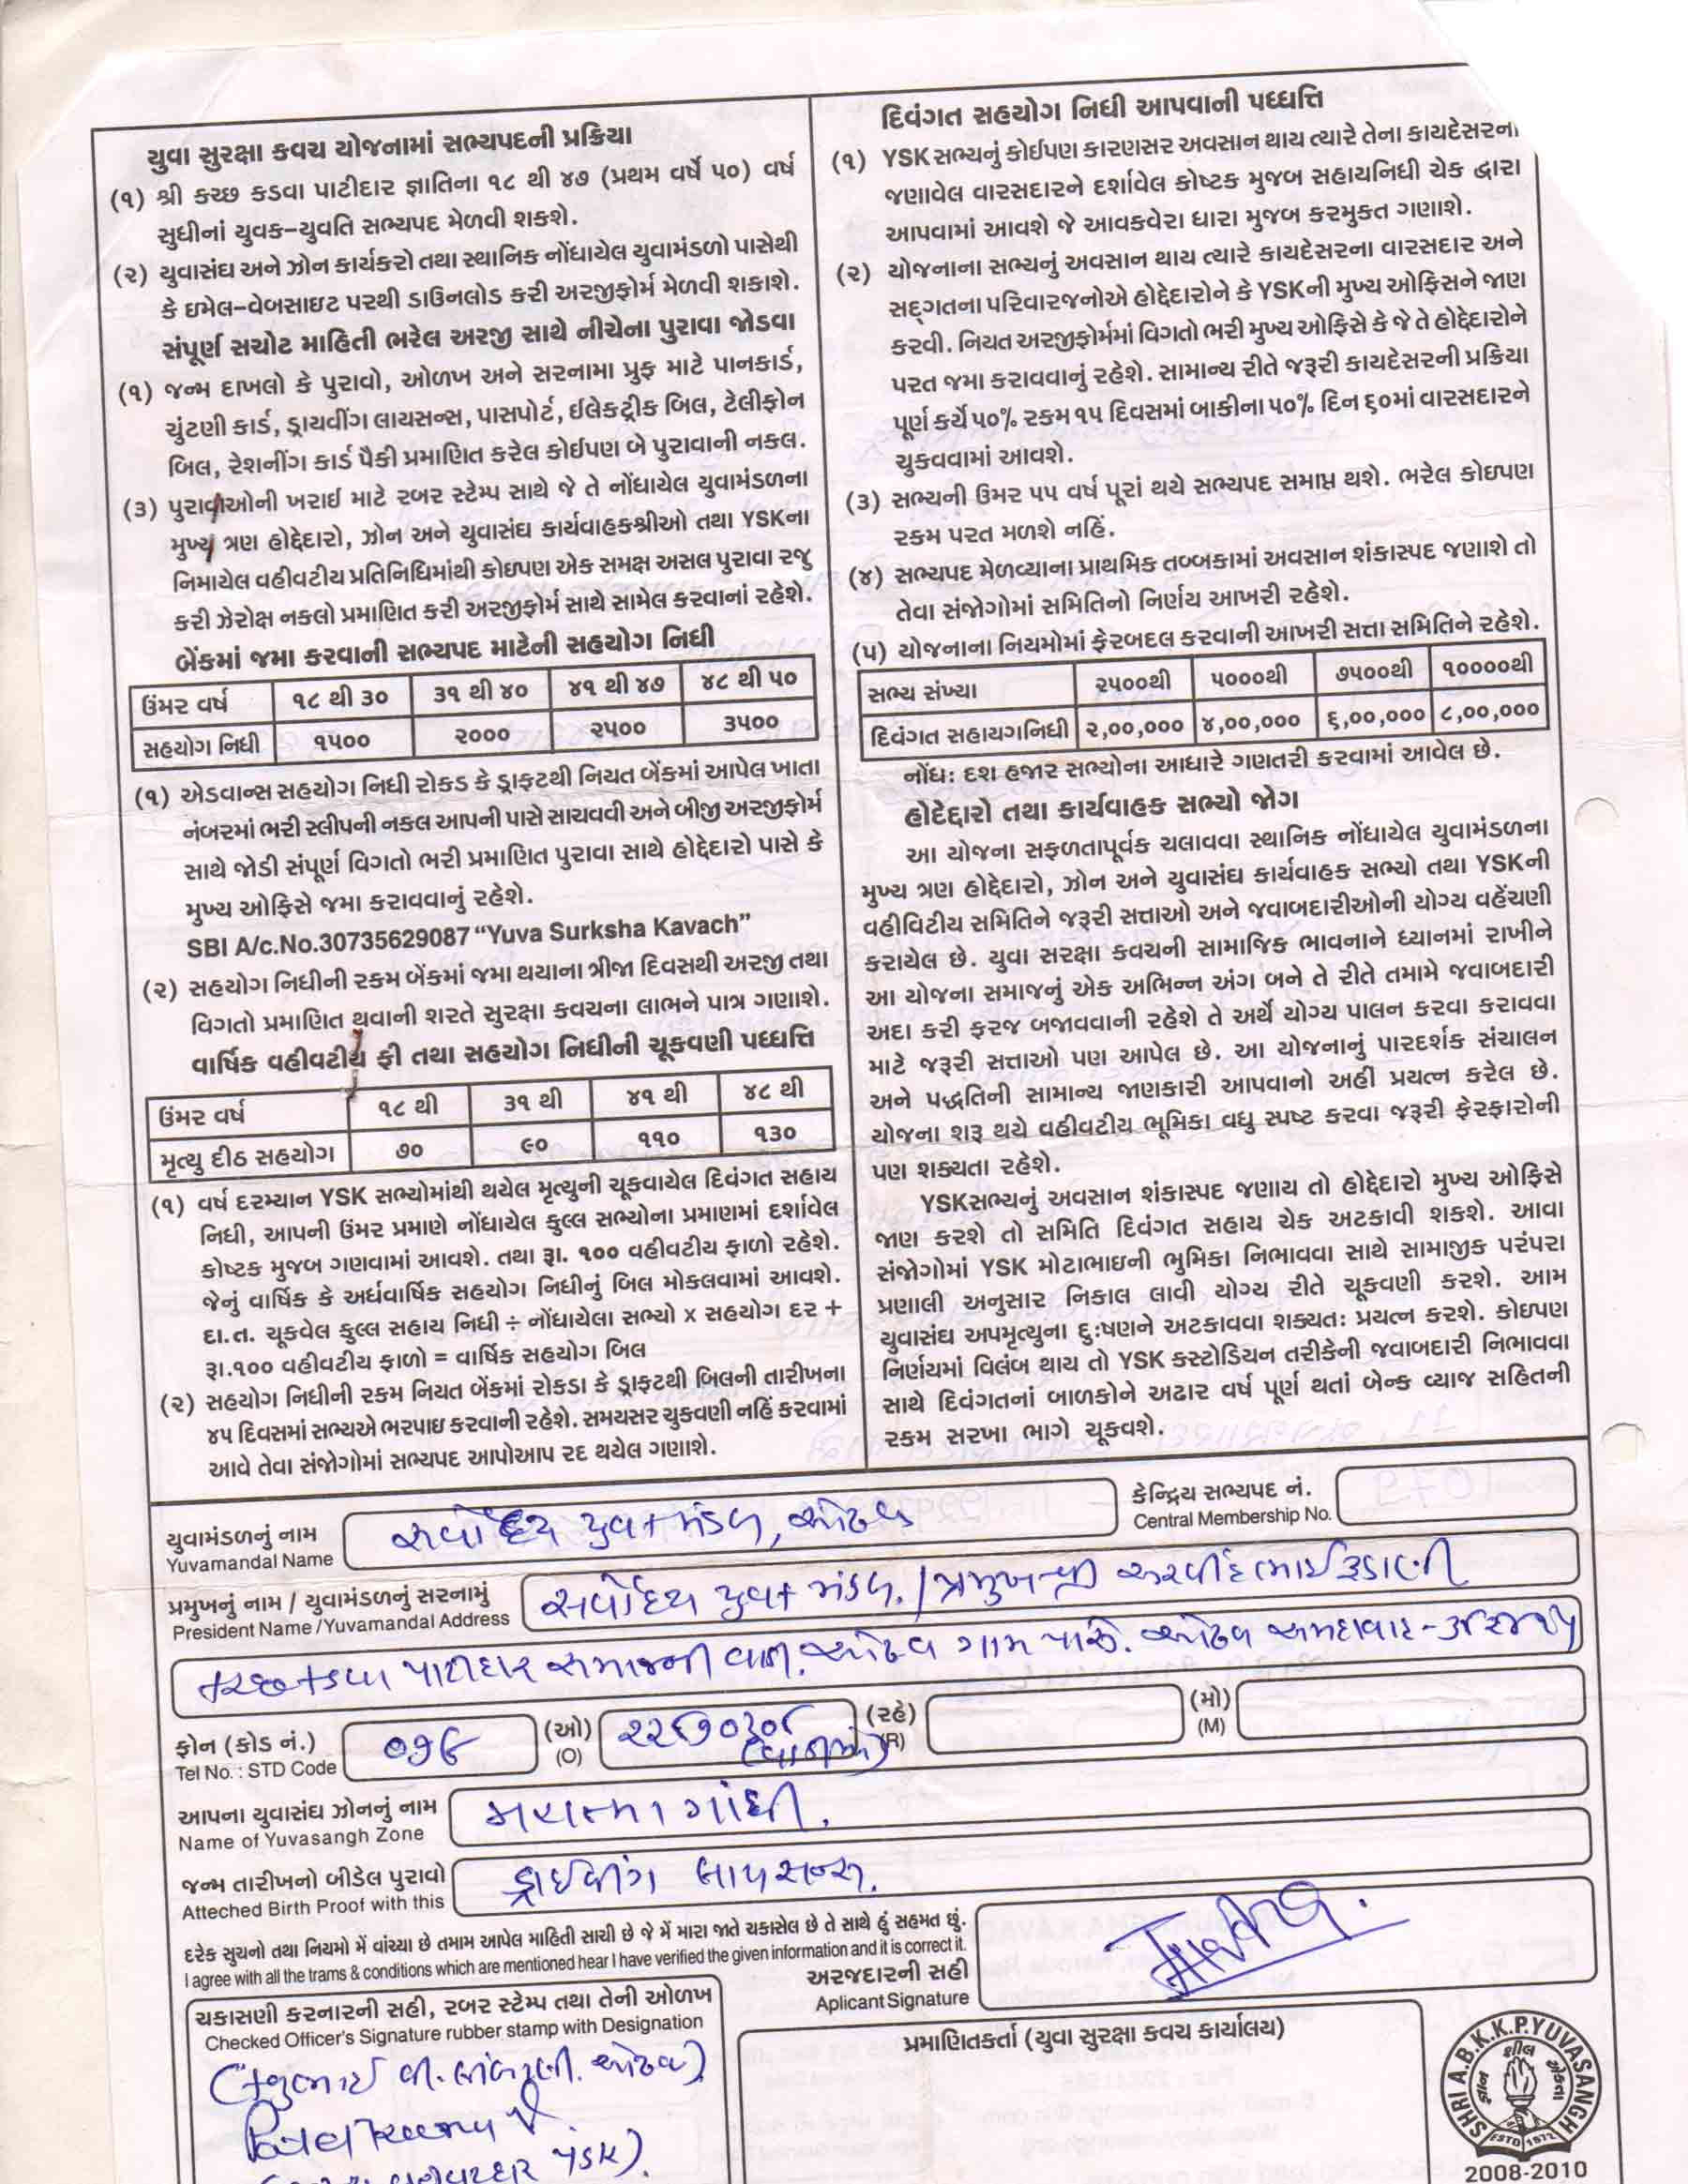 યુવા સુરક્ષા કવચ યોજનામાં સભ્યપદની પ્રક્રિયા
(૧) શ્રી કચ્છ કડવા પાટીદાર જ્ઞાતિના ૧૮ થી ૪૭ (પ્રથમ વર્ષે ૫૦) વર્ષ
સુધીનાં યુવક-યુવતિ સભ્યપદ મેળવી શકશે.
(૨) યુવાસંઘ અને ઝોન કાર્યકરો તથા સ્થાનિક નોંધાયેલ યુવામંડળો પાસેથી
કે ઇમેલ-વેબસાઇટ પરથી ડાઉનલોડ કરી અરજીફોર્મ મેળવી શકાશે.
સંપૂર્ણ સચોટ માહિતી ભરેલ અરજી સાથે નીચેના પુરાવા જોડવા
(૧) જન્મ દાખલો કે પુરાવો, ઓળખ અને સરનામા પ્રુફ માટે પાનકાર્ડ,
ચુંટણી કાર્ડ, ડ્રાયવીંગ લાયસન્સ, પાસપોર્ટ, ઈલેકટ્રીક બિલ, ટેલીફોન
બિલ, રેશનીંગ કાર્ડ પૈકી પ્રમાણિત કરેલ કોઈપણ બે પુરાવાની નકલ.
(૩) પુરાવાઓની ખરાઈ માટે રબર સ્ટેમ્પ સાથે જે તે નોંધાયેલ યુવામંડળના
મુખ્ય ત્રણ હોદ્દેદારો, ઝોન અને યુવાસંઘ કાર્યવાહકશ્રીઓ તથા YSKના
નિમાયેલ વહીવટીય પ્રતિનિધિમાંથી કોઇપણ એક સમક્ષ અસલ પુરાવા રજુ
કરી ઝેરોક્ષ નકલો પ્રમાણિત કરી અરજીફોર્મ સાથે સામેલ કરવાનાં રહેશે.
બેંકમાં જમા કરવાની સભ્યપદ માટેની સહયોગ નિધી
ઉંમર વર્ષ ૧૮ થી ૩૦ ૩૧ થી ૪૦ ૪૧ થી ૪૭ ૪૮ થી ૫૦
સહયોગ નિધી ૧૫૦૦ ૨૦૦૦ ૨૫૦૦ ૩૫૦૦
(૧) એડવાન્સ સહયોગ નિધી રોકડ કે ડ્રાફ્ટથી નિયત બેંકમાં આપેલ ખાતા
નંબરમાં ભરી સ્લીપની નકલ આપની પાસે સાચવવી અને બીજી અરજીફોર્મ
સાથે જોડી સંપૂર્ણ વિગતો ભરી પ્રમાણિત પુરાવા સાથે હોદ્દેદારો પાસે કે
મુખ્ય ઓફિસે જમા કરાવવાનું રહેશે.
SBI A/c.No.30735629087 “Yuva Surksha Kavach”
(૨) સહયોગ નિધીની રકમ બેંકમાં જમા થયાના ત્રીજા દિવસથી અરજી તથા
વિગતો પ્રમાણિત થવાની શરતે સુરક્ષા કવચના લાભને પાત્ર ગણાશે.
વાર્ષિક વહીવટીય ફી તથા સહયોગ નિધીની ચૂકવણી પધ્ધતિ
ઉંમર વર્ષ ૧૮ થી ૩૧ થી ૪૧ થી ૪૮ થી
મૃત્યુ દીઠ સહયોગ ૭૦ ૯૦ ૧૧૦ ૧૩૦
(૧) વર્ષ દરમ્યાન YSK સભ્યોમાંથી થયેલ મૃત્યુની ચૂકવાયેલ દિવંગત સહાય
નિધી, આપની ઉંમર પ્રમાણે નોંધાયેલ કુલ્લ સભ્યોના પ્રમાણમાં દર્શાવેલ
કોષ્ટક મુજબ ગણવામાં આવશે. તથા રૂા. ૧૦૦ વહીવટીય ફાળો રહેશે.
જેનું વાર્ષિક કે અર્ધવાર્ષિક સહયોગ નિધીનું બિલ મોકલવામાં આવશે.
દા.ત. ચૂકવેલ કુલ્લ સહાય નિધી ÷ નોંધાયેલા સભ્યો x સહયોગ દર +
રૂા.૧૦૦ વહીવટીય ફાળો = વાર્ષિક સહયોગ બિલ
(૨) સહયોગ નિધીની રકમ નિયત બેંકમાં રોકડા કે ડ્રાફ્ટથી બિલની તારીખના
૪૫ દિવસમાં સભ્યએ ભરપાઇ કરવાની રહેશે. સમયસર ચુકવણી નહિં કરવામાં
આવે તેવા સંજોગોમાં સભ્યપદ આપોઆપ રદ થયેલ ગણાશે.
દિવંગત સહયોગ નિધી આપવાની પધ્ધતિ
(૧) YSK સભ્યનું કોઈપણ કારણસર અવસાન થાય ત્યારે તેના કાયદેસરના
જણાવેલ વારસદારને દર્શાવેલ કોષ્ટક મુજબ સહાયનિધી ચેક દ્વારા
આપવામાં આવશે જે આવકવેરા ધારા મુજબ કરમુક્ત ગણાશે.
(૨) યોજનાના સભ્યનું અવસાન થાય ત્યારે કાયદેસરના વારસદાર અને
સદ્ગતના પરિવારજનોએ હોદ્દેદારોને કે YSKની મુખ્ય ઓફિસને જાણ
કરવી. નિયત અરજીફોર્મમાં વિગતો ભરી મુખ્ય ઓફિસે કે જે તે હોદ્દેદારોને
પરત જમા કરાવવાનું રહેશે. સામાન્ય રીતે જરૂરી કાયદેસરની પ્રક્રિયા
પૂર્ણ કર્યે ૫૦% રકમ ૧૫ દિવસમાં બાકીના ૫૦% દિન ૬૦માં વારસદારને
ચુકવવામાં આવશે.
(૩) સભ્યની ઉમર ૫૫ વર્ષ પૂરાં થયે સભ્યપદ સમાપ્ત થશે. ભરેલ કોઇપણ
રકમ પરત મળશે નહિં.
(૪) સભ્યપદ મેળવ્યાના પ્રાથમિક તબ્બકામાં અવસાન શંકાસ્પદ જણાશે તો
તેવા સંજોગોમાં સમિતિનો નિર્ણય આખરી રહેશે.
(૫) યોજનાના નિયમોમાં ફેરબદલ કરવાની આખરી સત્તા સમિતિને રહેશે.
સભ્ય સંખ્યા ૨૫૦૦થી ૫૦૦૦થી ૭૫૦૦થી ૧૦૦૦૦થી
દિવંગત સહાયગનિધી ૨,૦૦,૦૦૦ ૪,૦૦,૦૦૦ ૬,૦૦,૦૦૦ ૮,૦૦,૦૦૦
નોંધ: દશ હજાર સભ્યોના આધારે ગણતરી કરવામાં આવેલ છે.
હોદેદ્દારો તથા કાર્યવાહક સભ્યો જોગ
આ યોજના સફળતાપૂર્વક ચલાવવા સ્થાનિક નોંધાયેલ યુવામંડળના
મુખ્ય ત્રણ હોદ્દેદારો, ઝોન અને યુવાસંઘ કાર્યવાહક સભ્યો તથા YSKની
વહીવિટીય સમિતિને જરૂરી સત્તાઓ અને જવાબદારીઓની યોગ્ય વહેંચણી
કરાયેલ છે. યુવા સરક્ષા કવચની સામાજિક ભાવનાને ધ્યાનમાં રાખીને
આ યોજના સમાજનું એક અભિન્ન અંગ બને તે રીતે તમામે જવાબદારી
અદા કરી ફરજ બજાવવાની રહેશે તે અર્થે યોગ્ય પાલન કરવા કરાવવા
માટે જરૂરી સત્તાઓ પણ આપેલ છે. આ યોજનાનું પારદર્શક સંચાલન
અને પદ્ધતિની સામાન્ય જાણકારી આપવાનો અહીં પ્રયત્ન કરેલ છે.
યોજના શરૂ થયે વહીવટીય ભૂમિકા વધુ સ્પષ્ટ કરવા જરૂરી ફેરફારોની
પણ શક્યતા રહેશે.
YSKસભ્યનું અવસાન શંકાસ્પદ જણાય તો હોદ્દેદારો મુખ્ય ઓફિસે
જાણ કરશે તો સમિતિ દિવંગત સહાય ચેક અટકાવી શકશે. આવા
સંજોગોમાં YSK મોટાભાઇની ભુમિકા નિભાવવા સાથે સામાજીક પરંપરા
પ્રણાલી અનુસાર નિકાલ લાવી યોગ્ય રીતે ચૂકવણી કરશે. આમ
યુવાસંઘ અપમૃત્યુના દુઃષણને અટકાવવા શક્યતઃ પ્રયત્ન કરશે. કોઇપણ
નિર્ણયમાં વિલંબ થાય તો YSK કસ્ટોડિયન તરીકેની જવાબદારી નિભાવવા
સાથે દિવંગતનાં બાળકોને અઢાર વર્ષ પૂર્ણ થતાં બેન્ક વ્યાજ સહિતની
રકમ સરખા ભાગે ચૂકવશે.
યુવામંડળનું નામ
Yuvamandal Name
સર્વોદય યુવક મંડળ, ઓઢવ
કેન્દ્રિય સભ્યપદ નં.
Central Membership No.
પ્રમુખનું નામ / યુવામંડળનું સરનામું
President Name /Yuvamandal Address
સર્વોદય યુવક મંડળ. / પ્રમુખશ્રી અરવીંદભાઇ રૂડાણી
કચ્છ કડવા પાટીદાર સમાજની વાડી. ઓઢવ ગામ પાસે. ઓઢવ અમદાવાદ-
ફોન (કોડ નં.)
Tel No. : STD Code
૦૭૯
(ઓ)
(O)
(રહે)
(R)
(મો)
(M)
આપના યુવાસંઘ ઝોનનું નામ
Name of Yuvasangh Zone
મહાત્મા ગાંધી.
જન્મ તારીખનો બીડેલ પુરાવો
Atteched Birth Proof with this
ડ્રાઈવીંગ લાયસન્સ.
દરેક સુચનો તથા નિયમો મેં વાંચ્યા છે તમામ આપેલ માહિતી સાચી છે જે મેં મારા જાતે ચકાસેલ છે તે સાથે હું સહમત છું.
I agree with all the trams & conditions which are mentioned hear I have verified the given information and it is correct it.
અરજદારની સહી
Aplicant Signature
ચકાસણી કરનારની સહી, રબર સ્ટેમ્પ તથા તેની ઓળખ
Checked Officer's Signature rubber stamp with Designation
પ્રમાણિતકર્તા (યુવા સુરક્ષા કવચ કાર્યાલય)
SHRI A.B.K.K.P.YUVASANGH
ESTD 1972
2008-2010